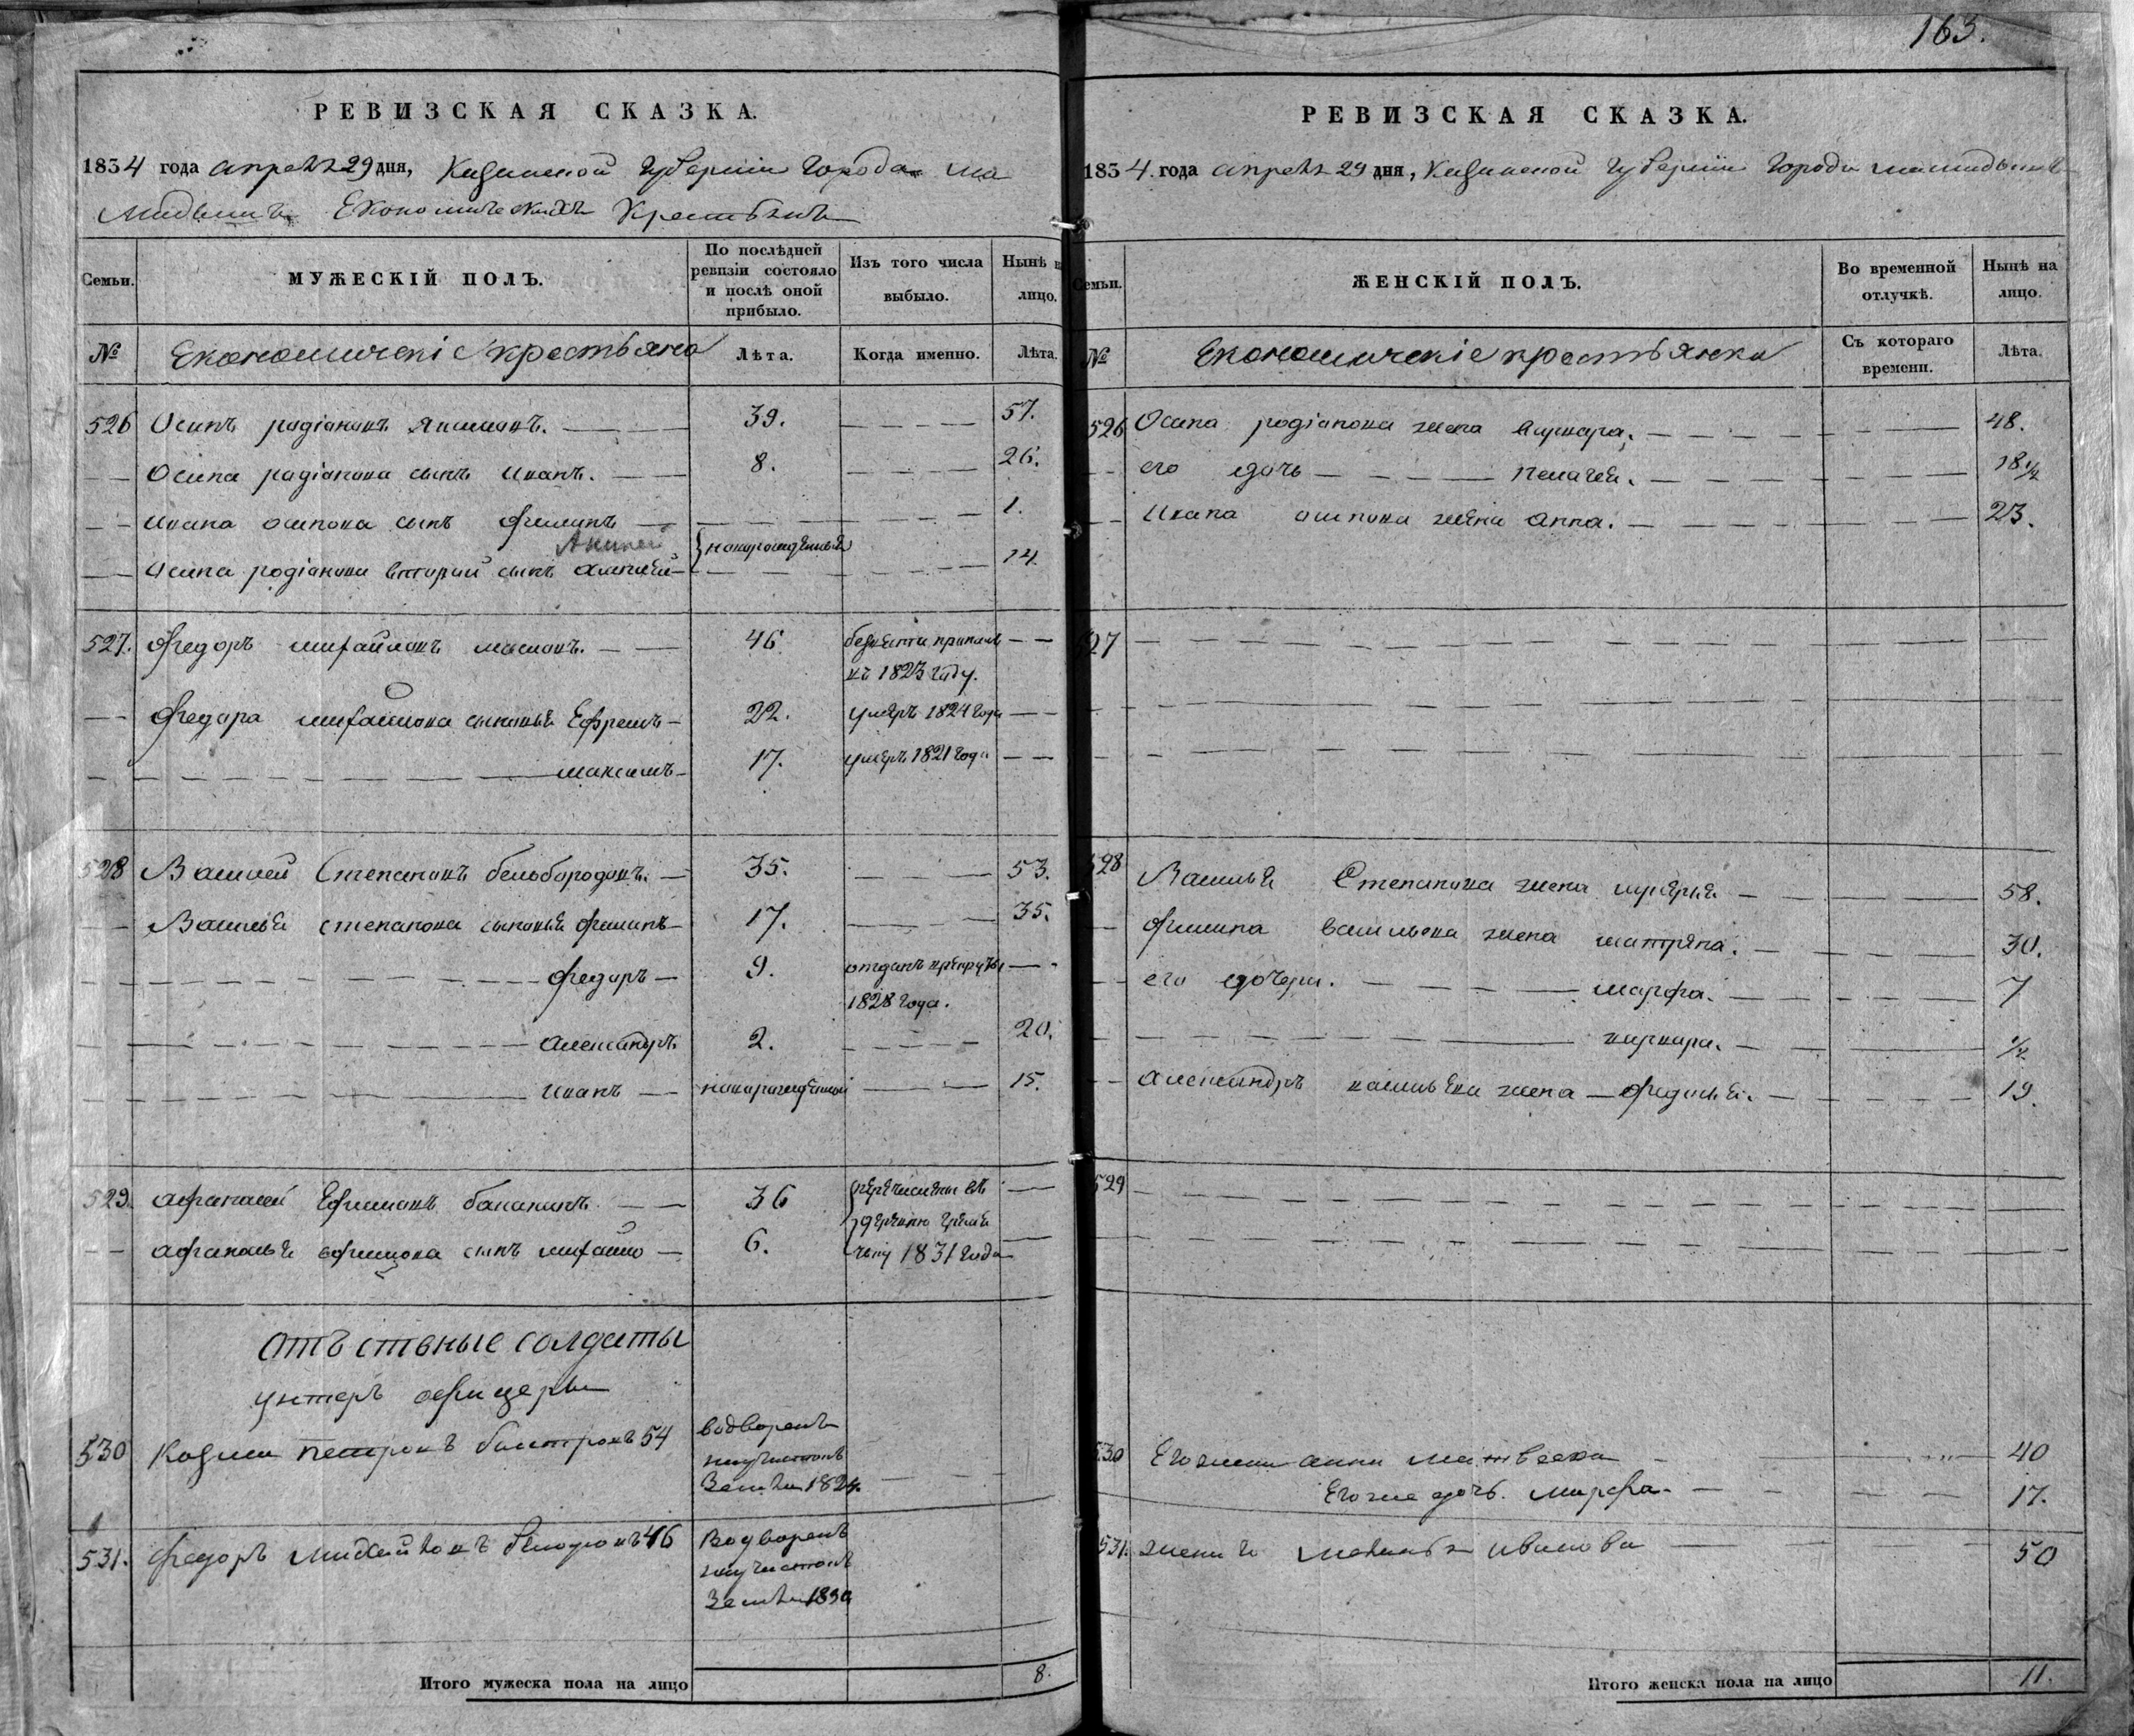 163.
РЕВИЗСКАЯ СКАЗКА.
1834 года апреля 29 дня, Казанской Губернии Города Ма
мадыша Економическихъ Крестьянъ
Семьи.
МУЖЕСКІЙ ПОЛЪ.
По послѣдней ревизіи состояло и послѣ оной прибыло.
Изъ того числа выбыло.
Нынѣ на лицо.
№
Економическіе крестьяна
Лѣта.
Когда именно.
Лѣта.
526 Осипъ радіановъ 39. 57.
Осипа радіанова сынъ Иванъ. 8. 26.
Ивана осипова сынъ Филипъ 1.
новорожденныя
Осипа родіанова вторый сынъ 14.
527. Федоръ михайловъ 46 безвести пропалъ
въ 1823 году.
Федара михайлова сыновья Ефремъ 22. умеръ 1824 года
максимъ 17. умеръ 1821 года
528 Василей Степановъ белобородовъ. 35. 53.
Василья степанова сыновья Филипъ 17. 35.
Федаръ 9. отданъ врекруты
1828 года.
Александръ 2. 20.
Иванъ новорожденный 15.
529. афанасей Ефимовъ 36 перечислены въ
деревню
афанасья ефимова сынъ михайло 6. 1831 года
Отъставные солдаты
унтеръ офицеры
530 Козма петровъ 54 водворенъ
научастокъ
Земли 1824.
531. Федоръ 46 Водворенъ
научастокъ
Земли 1830
Итого мужеска пола на лицо 8.
РЕВИЗСКАЯ СКАЗКА.
1834 года апреля 29 дня, Казанской Губернии Города мамадыша
Семьи.
ЖЕНСКІЙ ПОЛЪ.
Во временной отлучкѣ.
Нынѣ на лицо.
№
Економическіе крестьянки
Съ котораго времени.
Лѣта.
526 Осипа родіанова жена варвара. 48.
его дочь пелагея. 18 1/2
Ивана осипова жена анна. 23.
527
528 Василья Степанова жена 58.
Филипа васильева жена матрена. 30.
его дочери. марфа. 7
варвара. 1/2
александръ васильева жена федосья. 19.
529
530 Его жена анна Матвеева 40
Его же дочь. Марфа. 17.
531. жена Ивanova 50
Итого женска пола на лицо 11.